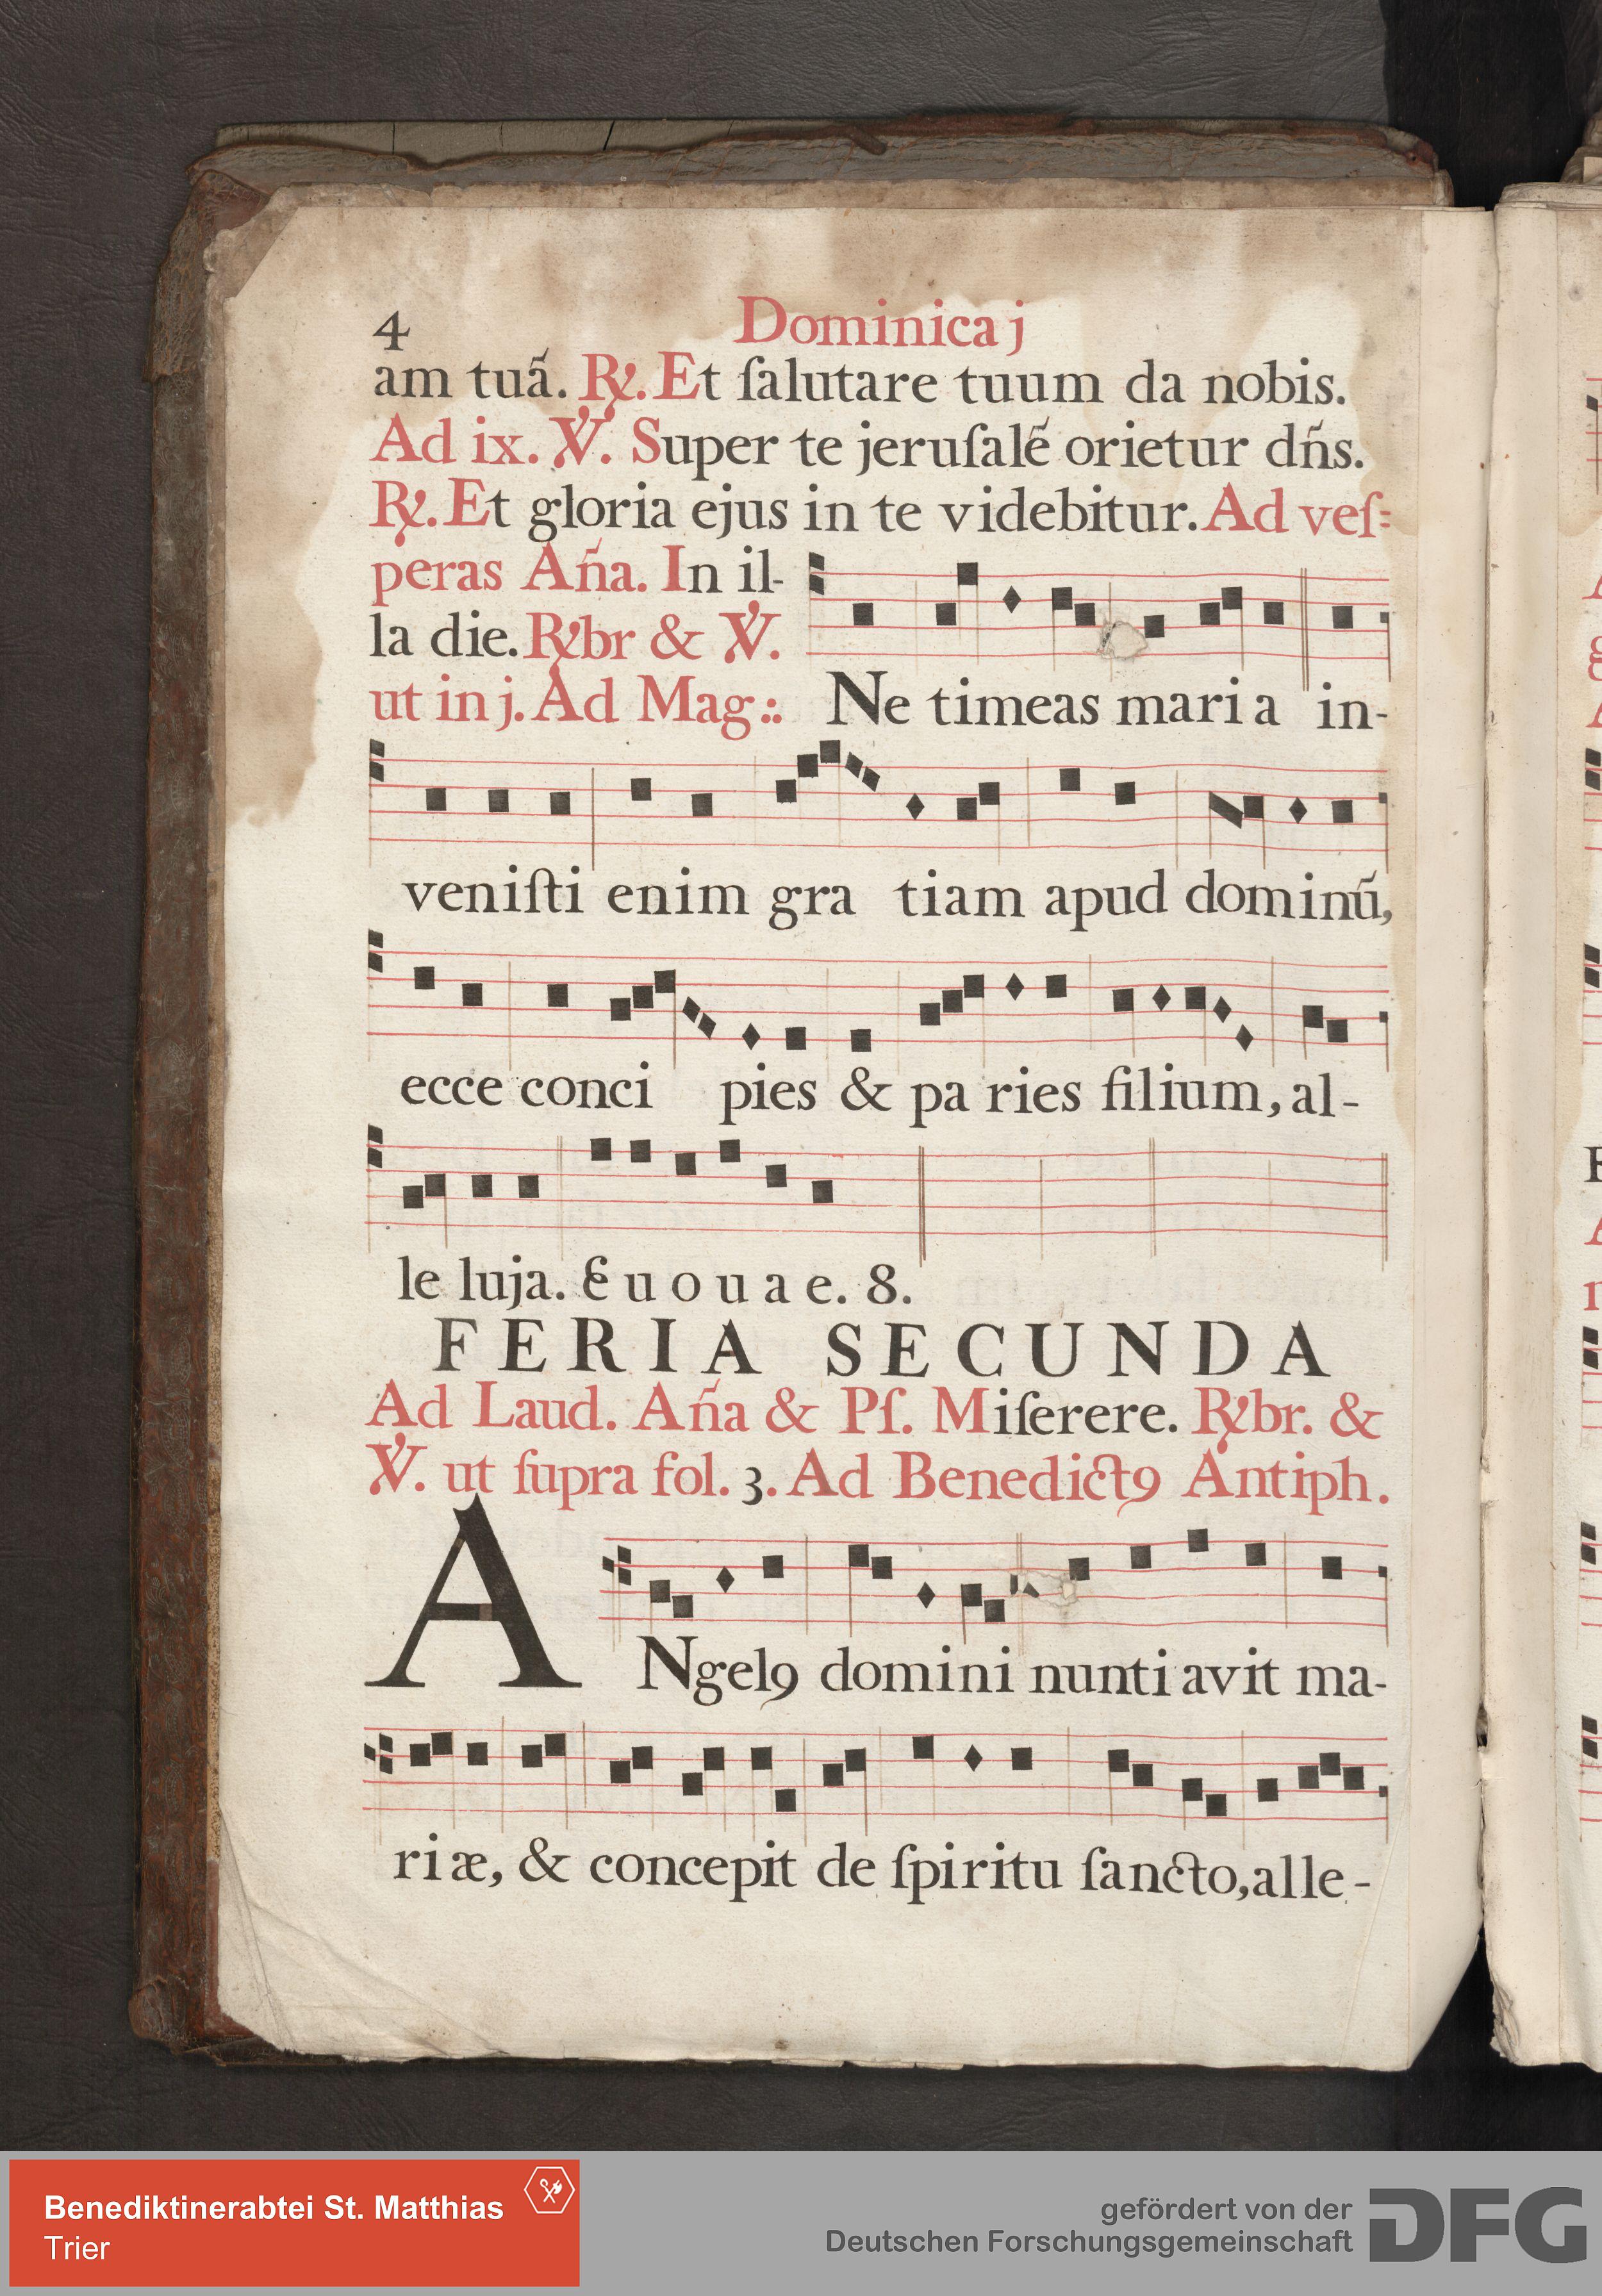 4 Dominica j
am tuã. ℟. Et ſalutare tuum da nobis.
Ad ix. ℣. Super te jeruſalẽ orietur dñs.
℟. Et gloria ejus in te videbitur. Ad veſ=
peras Aña. In il-
la die. ℟br & ℣.
ut in j. Ad Mag:. Ne timeas maria in-
veniſti enim gra tiam apud dominũ,
ecce conci pies & pa ries filium, al-
le luja. Euouae. 8.
FERIA SECUNDA
Ad Laud. Aña & Pſ. Miſerere. ℟br. &
℣. ut ſupra fol. 3. Ad Benedictꝯ Antiph.
ANgelꝯ domini nunti avit ma-
riæ, & concepit de ſpiritu ſancto, alle-
Benediktinerabtei St. Matthias
Trier
gefördert von der
Deutschen Forschungsgemeinschaft
DFG